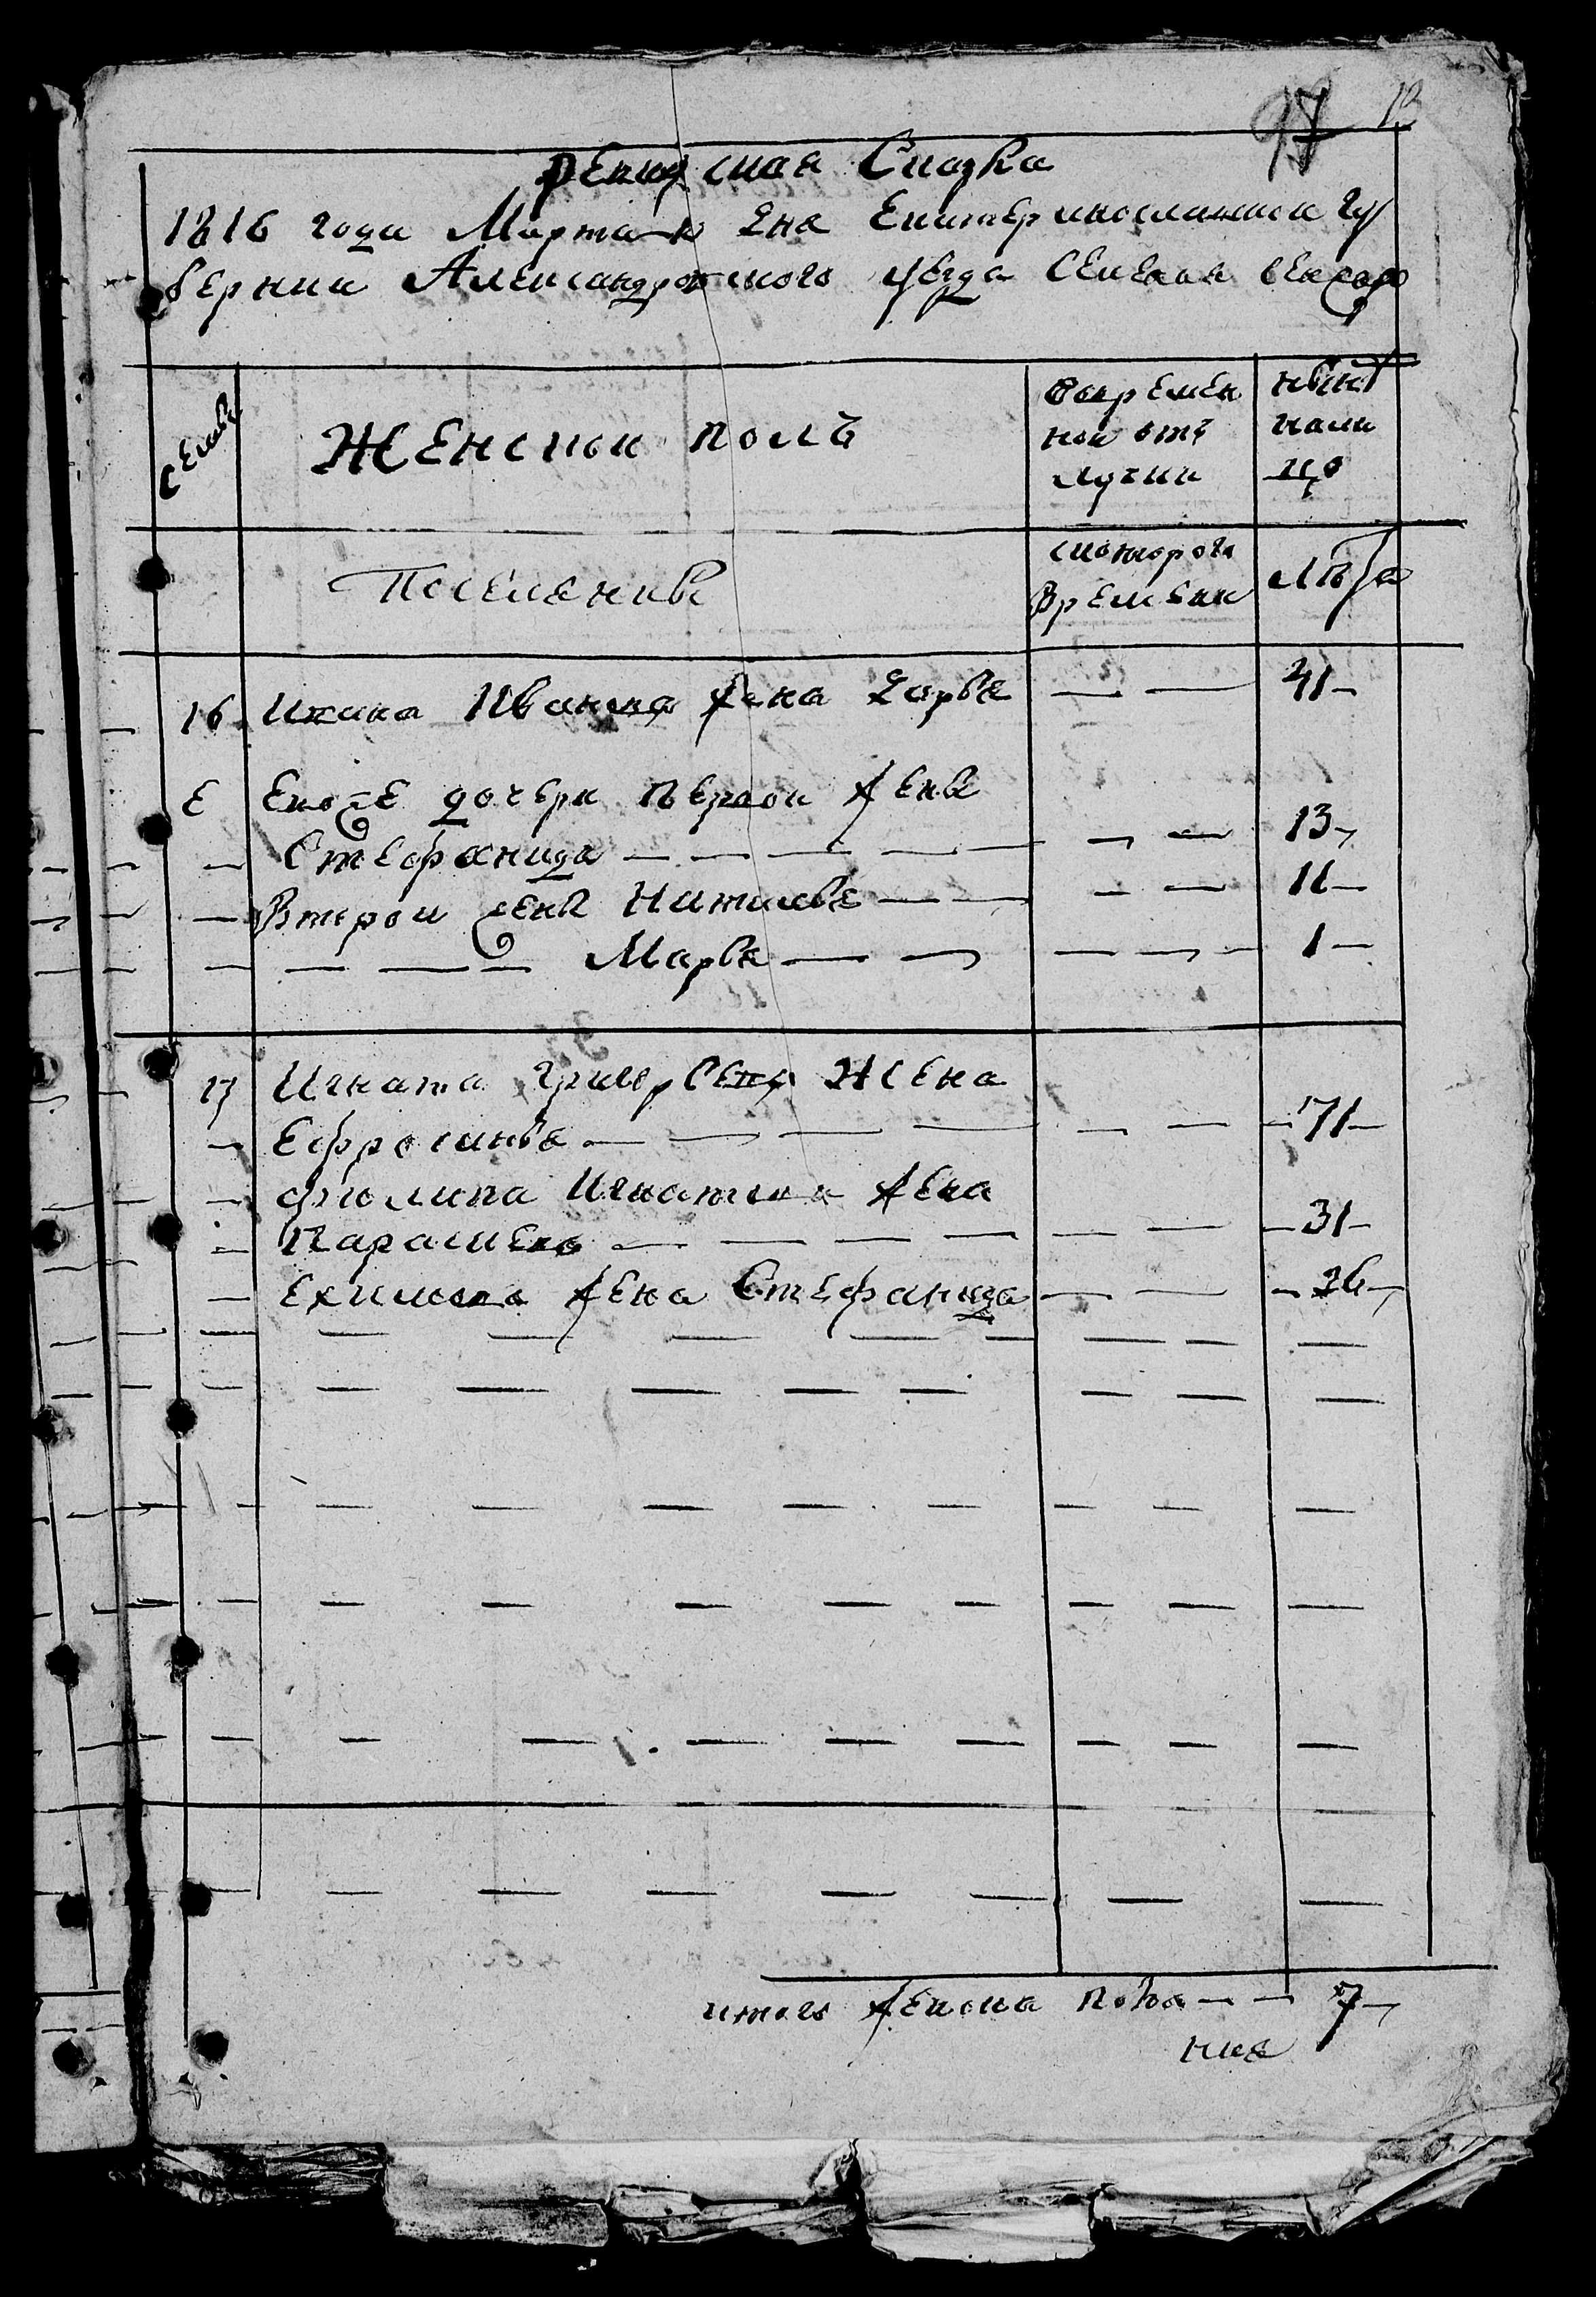 97 12
ревизская Сказка
1816 года Марта дня Екатеринославской гу
бернии Александровского уезда селения
семья
Женской полъ
вовремен
ной отъ
лучки
ныне
нали
цо
Поселяных
скоторого
времени
лета
16 Ивана жена Дарья 41
Е Его же дочери первой жены
Стефанида 13
Второй жены Наталья 11
Марья 1
17 Игната жена
Ефросинья 71
Филипа Игнатова жена
Парасковья 31
Екимова жена Стефанида 26
итого женска пола 7